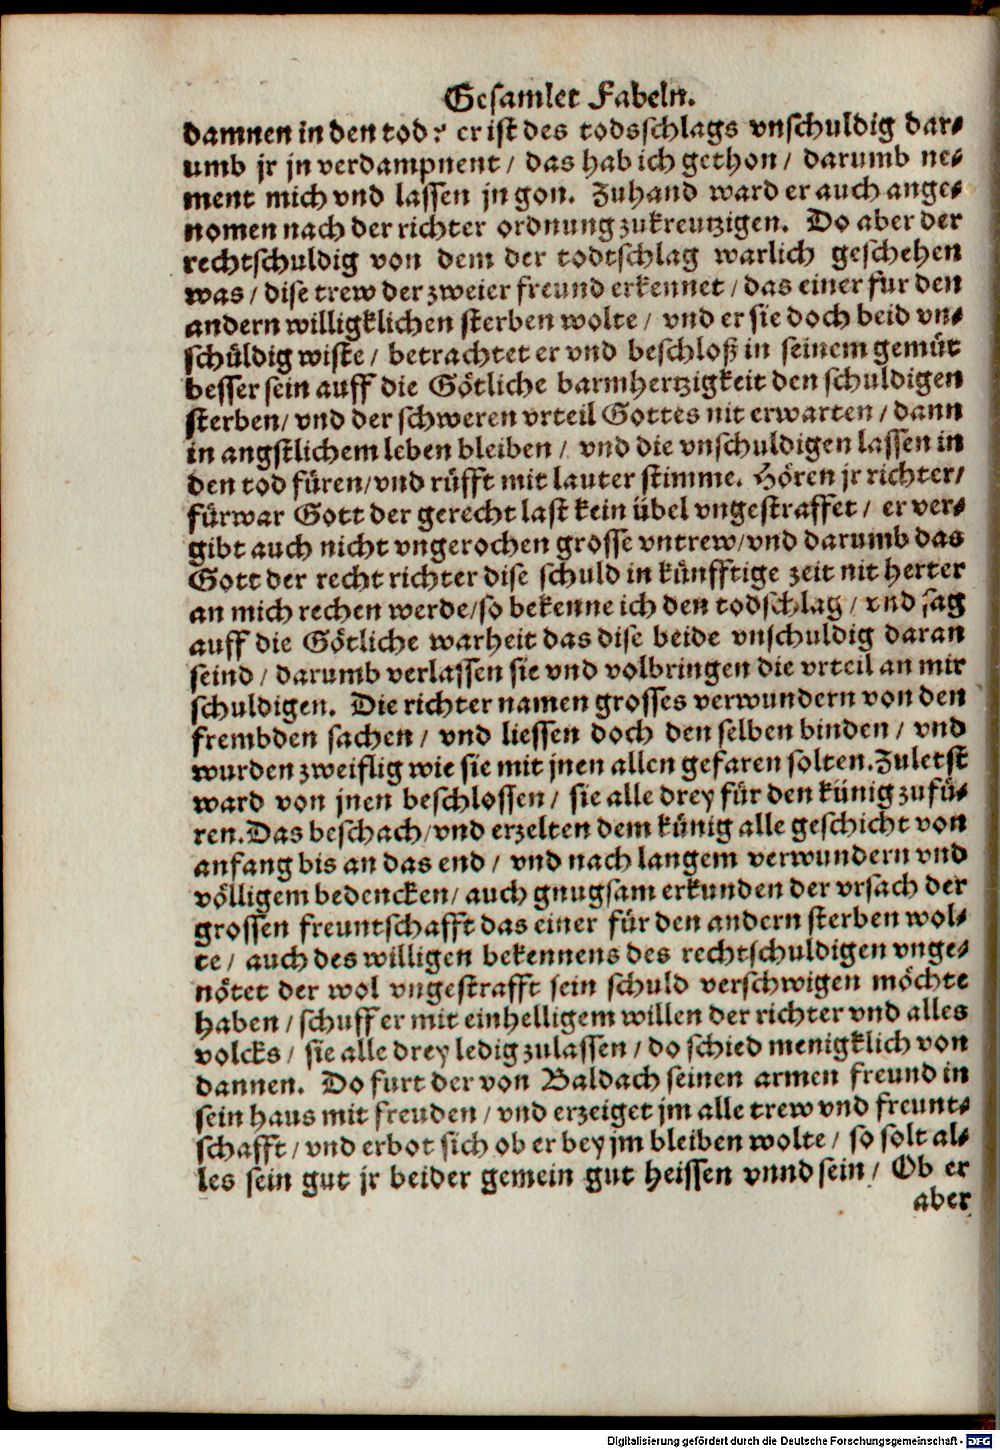 Gesamlet Fabeln.
damnen in den tod? er ist des todsschlags vnschuldig dar⸗
umb jr jn verdampnent / das hab ich gethon / darumb ne⸗
ment mich vnd lassen jn gon. Zuhand ward er auch ange⸗
nomen nach der richter ordnung zukreutzigen. Do aber der
rechtschuldig von dem der todtschlag warlich geschehen
was / dise trew der zweier freund erkennet / das einer für den
andern willigklichen sterben wolte / vnd er sie doch beid vn⸗
schuldig wiste / betrachtet er vnd beschloß in seinem gemüt
besser sein auff die Götliche barmhertzigkeit den schuldigen
sterben / vnd der schweren vrteil Gottes nit erwarten / dann
in angstlichem leben bleiben / vnd die vnschuldigen lassen in
den tod füren / vnd rüfft mit lauter stimme. Hören jr richter /
fürwar Gott der gerecht last kein übel vngestraffet / er ver⸗
gibt auch nicht vngerochen grosse vntrew / vnd darumb das
Gott der recht richter dise schuld in künfftige zeit nit herter
an mich rechen werde / so bekenne ich den todschlag / vnd sag
auff die Götliche warheit das dise beide vnschuldig daran
seind / darumb verlassen sie vnd volbringen die vrteil an mir
schuldigen. Die richter namen grosses verwundern von den
frembden sachen / vnd liessen doch den selben binden / vnd
wurden zweiflig wie sie mit jnen allen gefaren solten. Zuletst
ward von jnen beschlossen / sie alle drey für den künig zufü⸗
ren. Das beschach / vnd erzelten dem künig alle geschicht von
anfang bis an das end / vnd nach langem verwundern vnd
völligem bedencken / auch gnugsam erkunden der vrsach der
grossen freuntschafft das einer für den andern sterben wol⸗
te / auch des willigen bekennens des rechtschuldigen vnge⸗
nötet der wol vngestrafft sein schuld verschwigen möchte
haben / schuff er mit einhelligem willen der richter vnd alles
volcks / sie alle drey ledig zulassen / do schied menigklich von
dannen. Do furt der von Baldach seinen armen freund in
sein haus mit freuden / vnd erzeiget jm alle trew vnd freunt⸗
schafft / vnd erbot sich ob er bey jm bleiben wolte / so solt al⸗
les sein gut jr beider gemein gut heissen vnnd sein / Ob er
aber
Digitalisierung gefördert durch die Deutsche Forschungsgemeinschaft - DFG